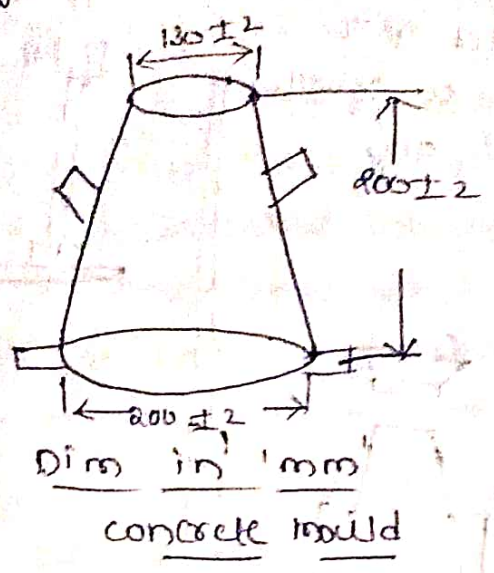 130 ± 2
200 ± 2
200 ± 2
Dim in 'mm'
concrete mould